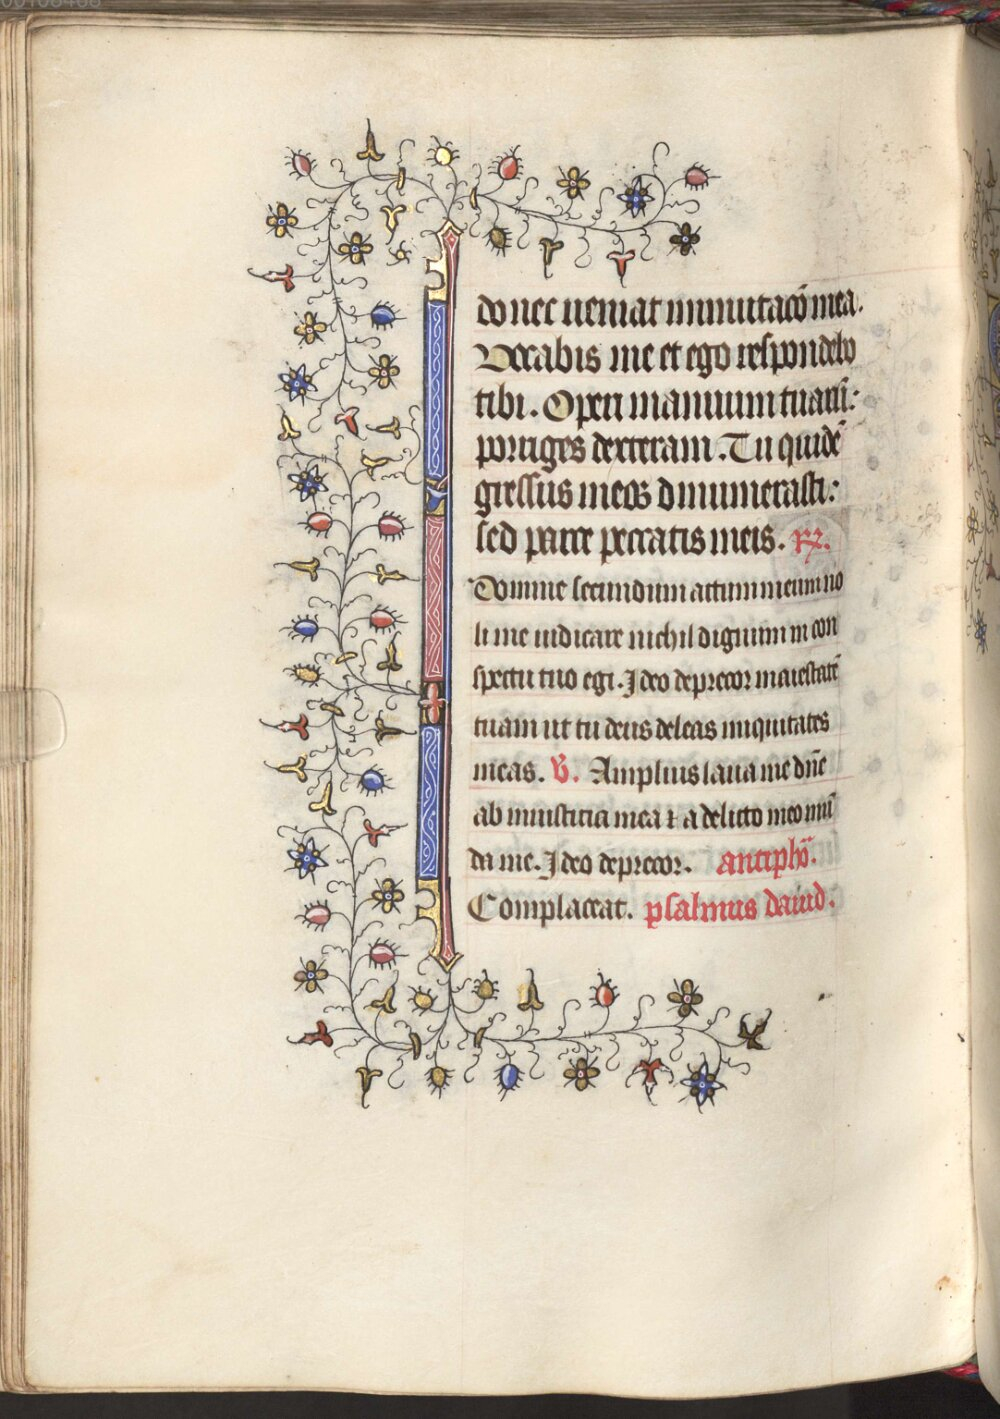 donec ueniat inmutacō mea.
Vocabis me et ego respondebo
tibi. Operi manuum tuaɽ:
porriges dexteram. Tu quidē
gressus meos dinumerasti:
sed parce peccatis meis. ꝶ.
Domine secundum actum meum no
li me iudicare nichil dignum in con
spectu tuo egi. Ideo deprecor maiestatē
tuam ut tu deus deleas iniquitates
meas. ℣. Amplius laua me dn̄e
ab iniusticia mea ⁊ a delicto meo mū
da me. Ideo deprecor. antiphō.
Complaceat. psalmus dauid.